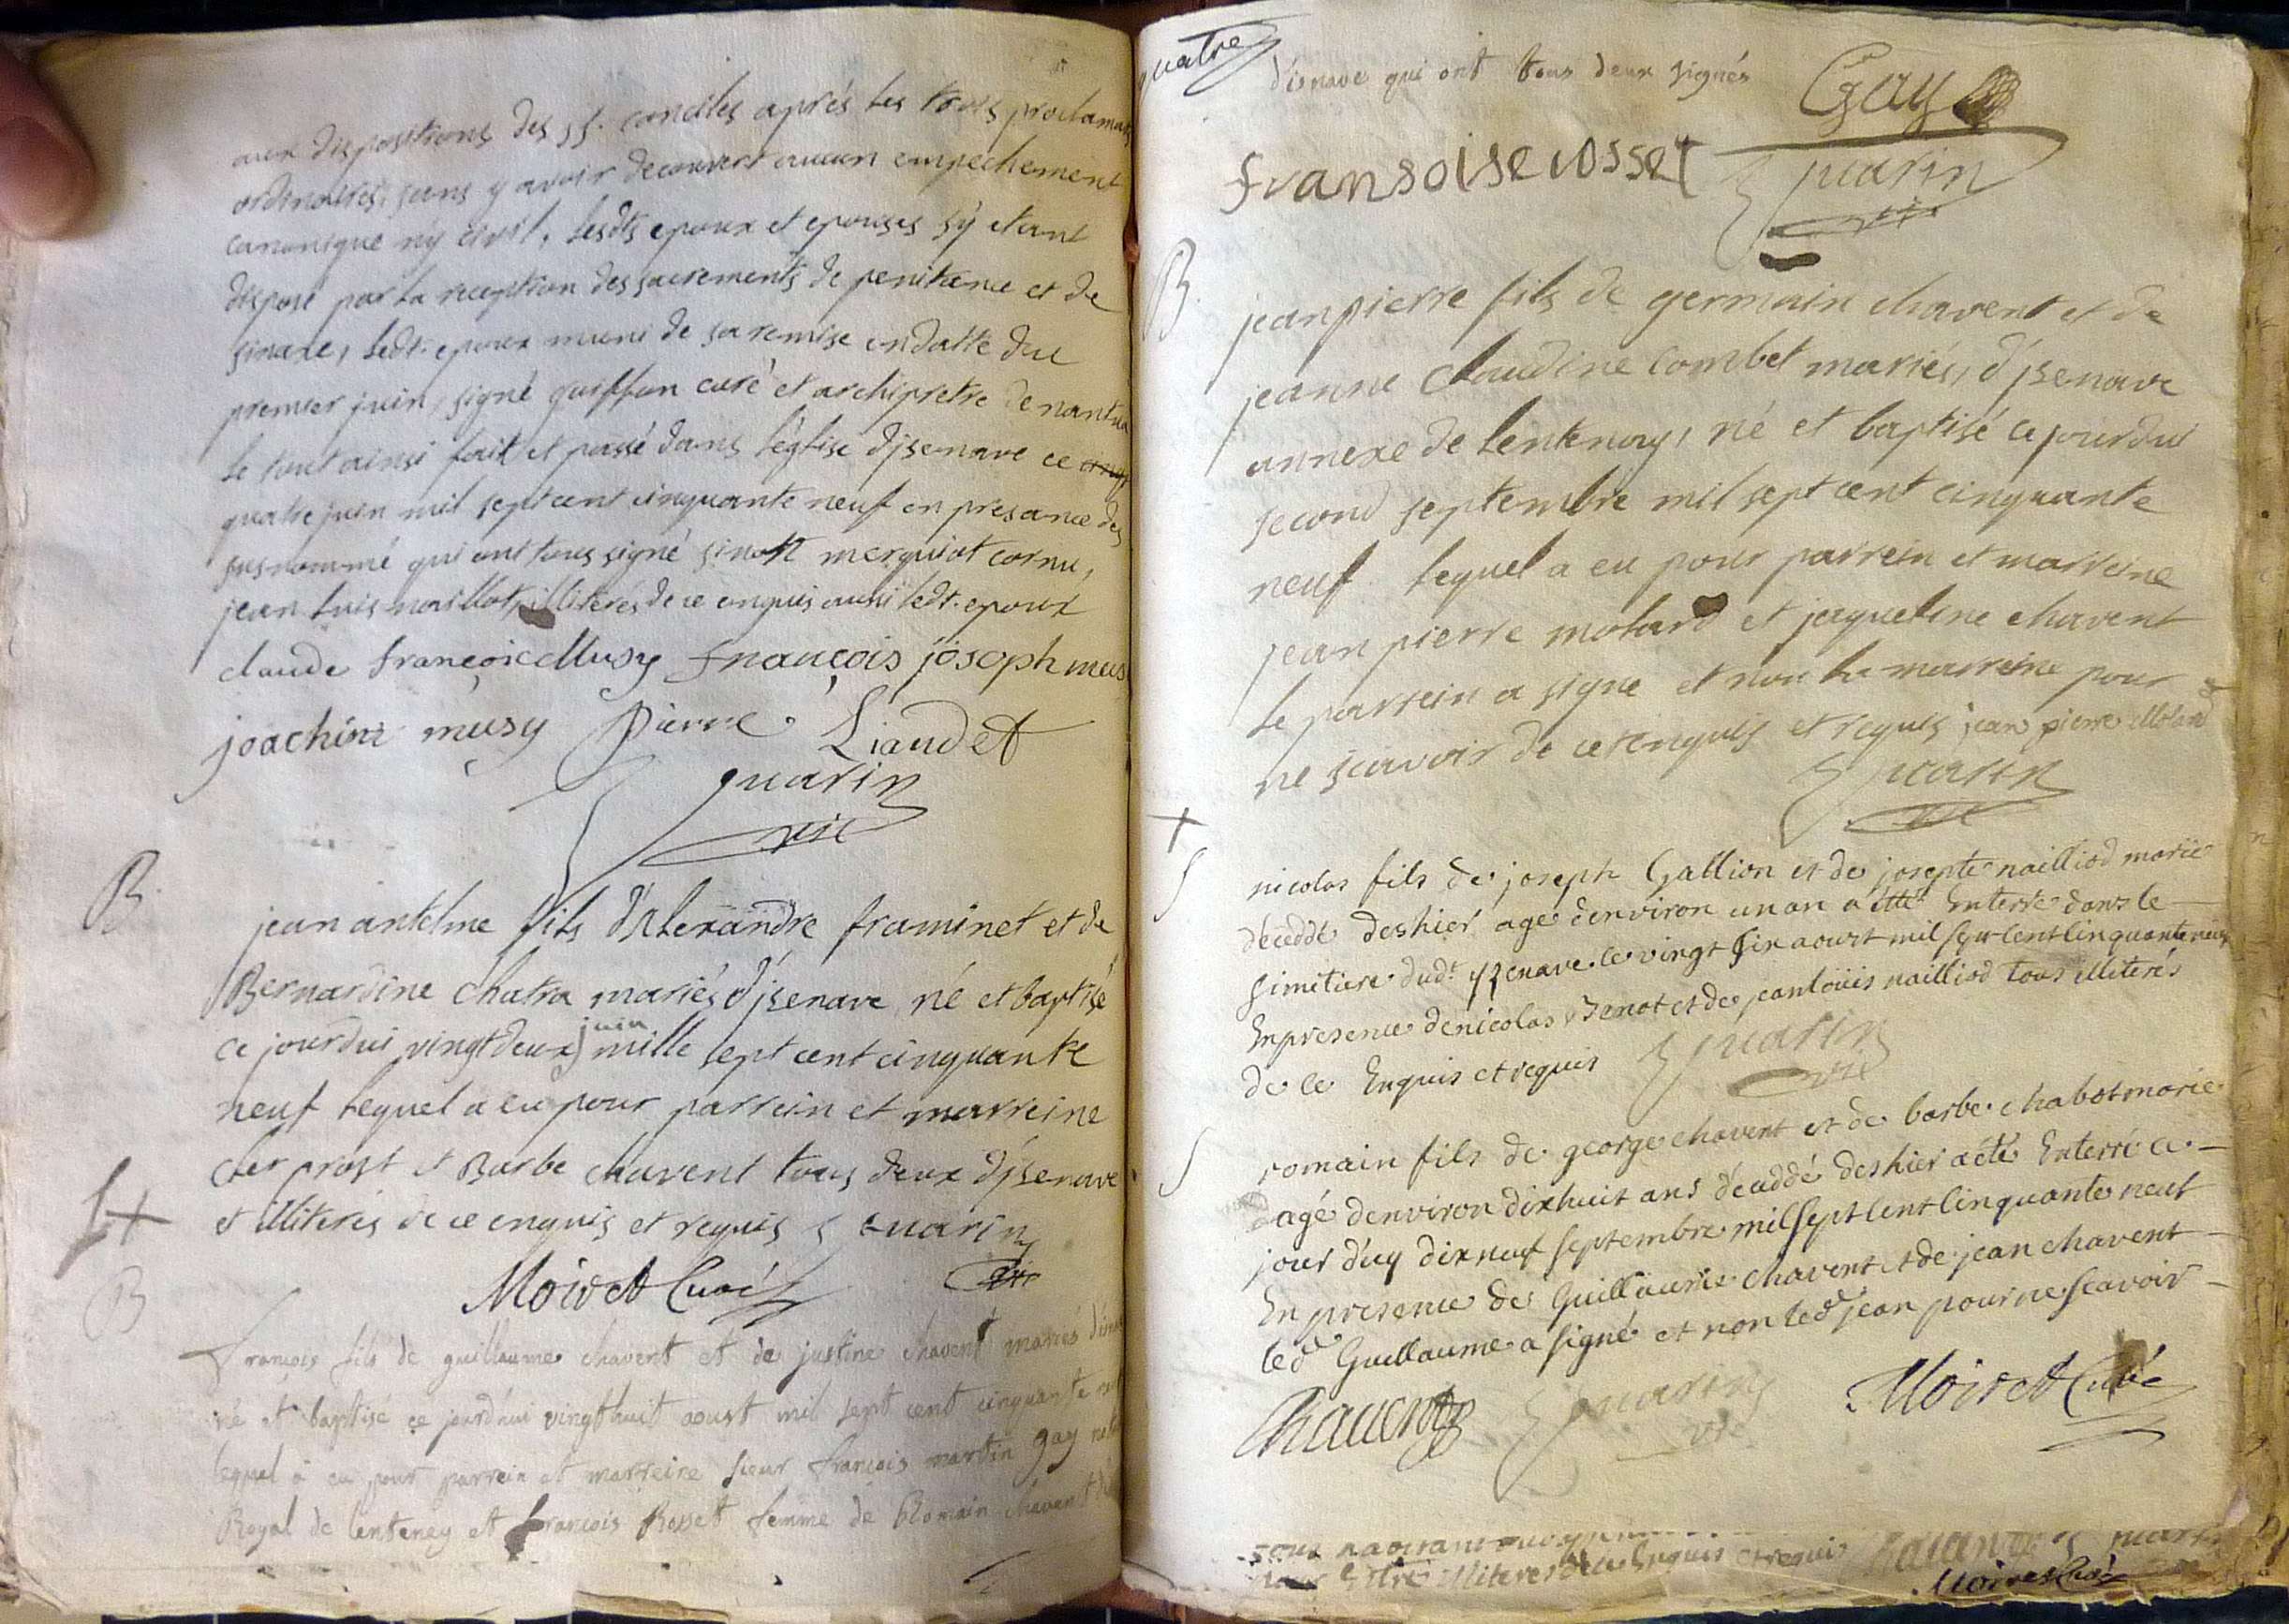 aux dispositions des ss. conciles aprés les trois proclamat
ordinaires, sans y avoir decouvert aucun empechement
canonique ny civil, lesdts epoux et epouses sÿ etant
disposé par la reception des sacrements de penitence et de
sinaxe, ledt. epoux muni de sa remise en datte du
premier juin, signé curé et archipretre de nantua
le tout ainsi fait et passé dans léglise djsenave ce cinq
quatre juin mil sept cent cinquante neuf en presance des
susnommé qui ont tous signé sinon cornu,
jean luis naillot, illiterés de ce enquis aussi ledt. epoux
claude françoic Musy françois josoph mus
joachim musy pierre Liaudet
quarin
vic
B.
jean antelme fils d'Alexandre framinet et de
Bernardine chatra mariés d'jsenave, né et baptisé
ce jourdui vingtdeux juin mille sept cent cinquante
neuf lequel a eu pour parrein et marreine
cler prost et Barbe chavent tous deux djsenave
et illiterés de ce enquis et requis quarin
Moiret Curé vic
B
françois fils de guillaume chavent et de justine chavent mariés
né et baptisé ce jourd'hui vingthuit aoust mil sept cent cinquante
lequel à eu pour parrein et marreine sieur françois martin gay
Royal de lenteney et françois Rosset femme de Romain chavent
quatre
d'isnave qui ont tous deux signés Gay
fransoise rosset quarin
vic
B.
jean pierre fils de germain chavent et de
jeanne claudine combet mariés, d'jsenave
annexe de lentenay, né et baptisé ce jourdui
second septembre mil sept cent cinquante
neuf lequel a eu pour parrein et marreine
jean pierre molard et jaqueline chavent
le parrein a signe et non la marreine pour
ne sçavoir de ce enquis et requis jean pierre Molard
quarin
vic
nicolas fils de joseph Gallion et de josepte nailliod marié
decedde deshier age denviron un an a etté Enterré dans le
simitiere dudt. yzenave le vingt six aoust mil sept cent cinquante neuf
En presence de nicolas Benot et de jean loüis nailliod tous illiterés
de ce Enquis et requis quarin
vic
romain fils de george chavent et de barbe chabot marié
agé denviron dixhuit ans déceddé deshier a été Enterré ce
jour d'uy dix neuf septembre mil sept cent cinquante neuf
En presence de Guillaume chavent et de jean chavent
led Guillaume a signé et non led jean pour ne scavoir
Chauent quarin Moiret Curé
vic
pour etre illiteres de ce Enquis et requis
Moiret Curé